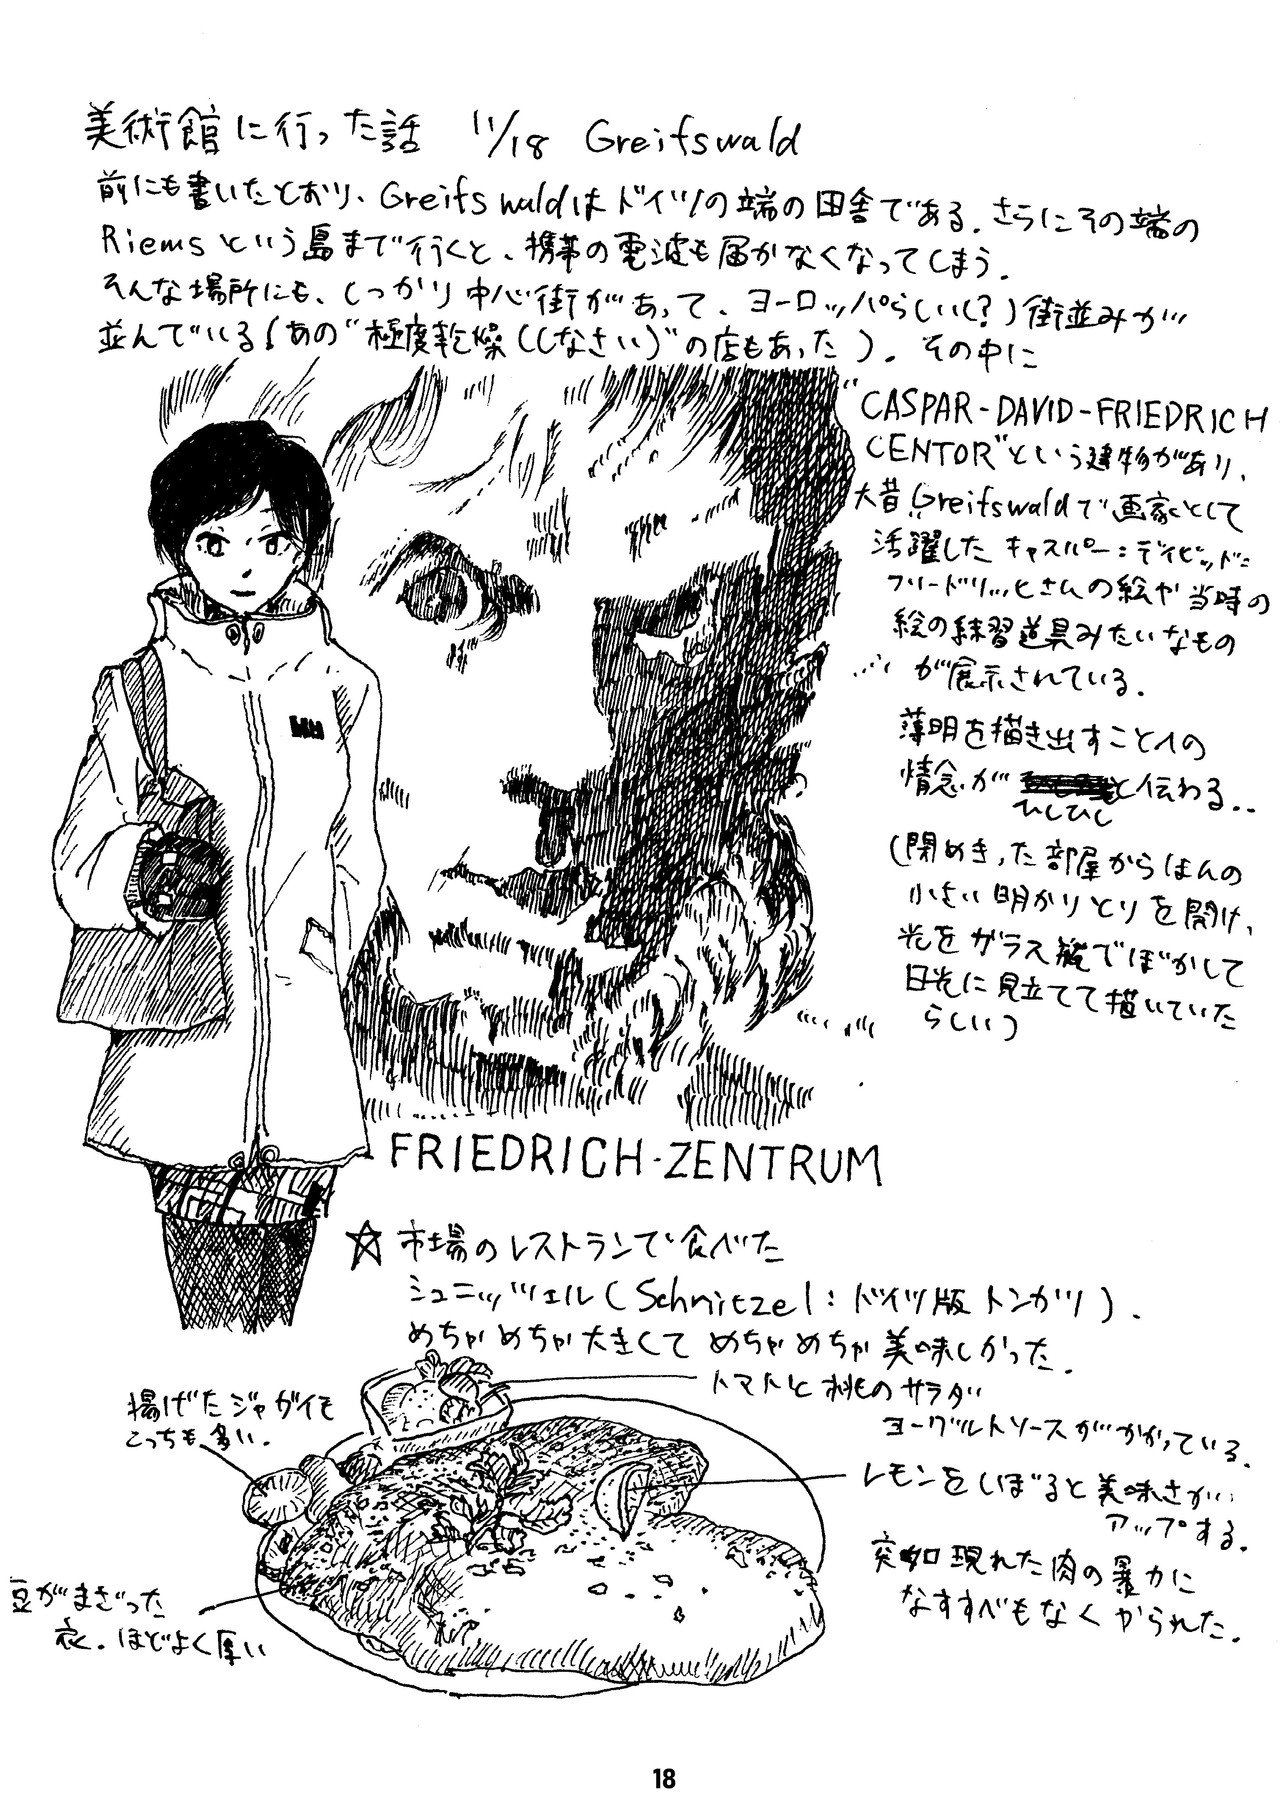 美術館に行った話 11/18 Greifswald
前にも書いたとおり、Greifswaldはドイツの端の田舎である。さらにその端の
Riemsという島まで行くと、携帯の電波も届かなくなってしまう。
そんな場所にも、しっかり中心街があって、ヨーロッパらしい(?)街並みが
並んでいる(あの"極度乾燥(しなさい)"の店もあった)。その中に
"CASPAR-DAVID-FRIEDRICH
CENTOR"という建物があり、
大昔Greifswaldで画家として
活躍したキャスパー=デイビッド=
フリードリッヒさんの絵や当時の
絵の練習道具みたいなもの
が展示されている。
薄明を描き出すことへの
情念がひしひしと伝わる..
(閉めきった部屋からほんの
小さい明かりとりを開け、
光をガラス瓶でぼかして
日光に見立てて描いていた
らしい)
FRIEDRICH-ZENTRUM
☆市場のレストランで食べた
シュニッツェル(Schnitzel:ドイツ版トンカツ)。
めちゃめちゃ大きくてめちゃめちゃ美味しかった。
トマトと桃のサラダ
ヨーグルトソースがかかっている。
揚げたジャガイモ
こっちも多い。
レモンをしぼると美味さが
アップする。
豆がまざった
衣。ほどよく厚い
突如現れた肉の暴力に
なすすべもなくやられた。
18